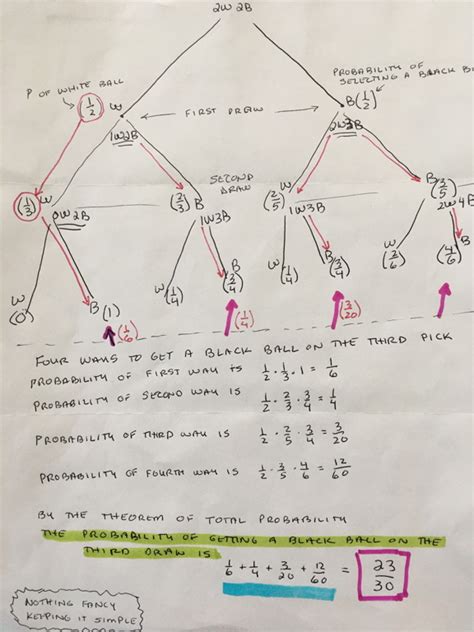 2W 2B
P OF WHITE BALL
PROBABILITY OF
SELECTING A BLACK
(1/2) W
FIRST DRAW
B (1/2)
1W2B
2W3B
SECOND
DRAW
(1/3) W
(2/3) B
(2/5) W
B (3/5)
0W2B
1W3B
1W3B
2W4B
W (0)
B (1)
W (1/4)
B (3/4)
W (1/4)
B (3/4)
W 2/6
B (4/6)
(1/6)
(1/4)
(3/20)
FOUR WAYS TO GET A BLACK BALL ON THE THIRD PICK
PROBABILITY OF FIRST WAY IS 1/2 · 1/3 · 1 = 1/6
PROBABILITY OF SECOND WAY IS 1/2 · 2/3 · 3/4 = 1/4
PROBABILITY OF THIRD WAY IS 1/2 · 2/5 · 3/4 = 3/20
PROBABILITY OF FOURTH WAY IS 1/2 · 3/5 · 4/6 = 12/60
BY THE THEOREM OF TOTAL PROBABILITY
THE PROBABILITY OF GETTING A BLACK BALL ON THE
THIRD DRAW IS 1/6 + 1/4 + 3/20 + 12/60 = 23/30
NOTHING FANCY
KEEPING IT SIMPLE